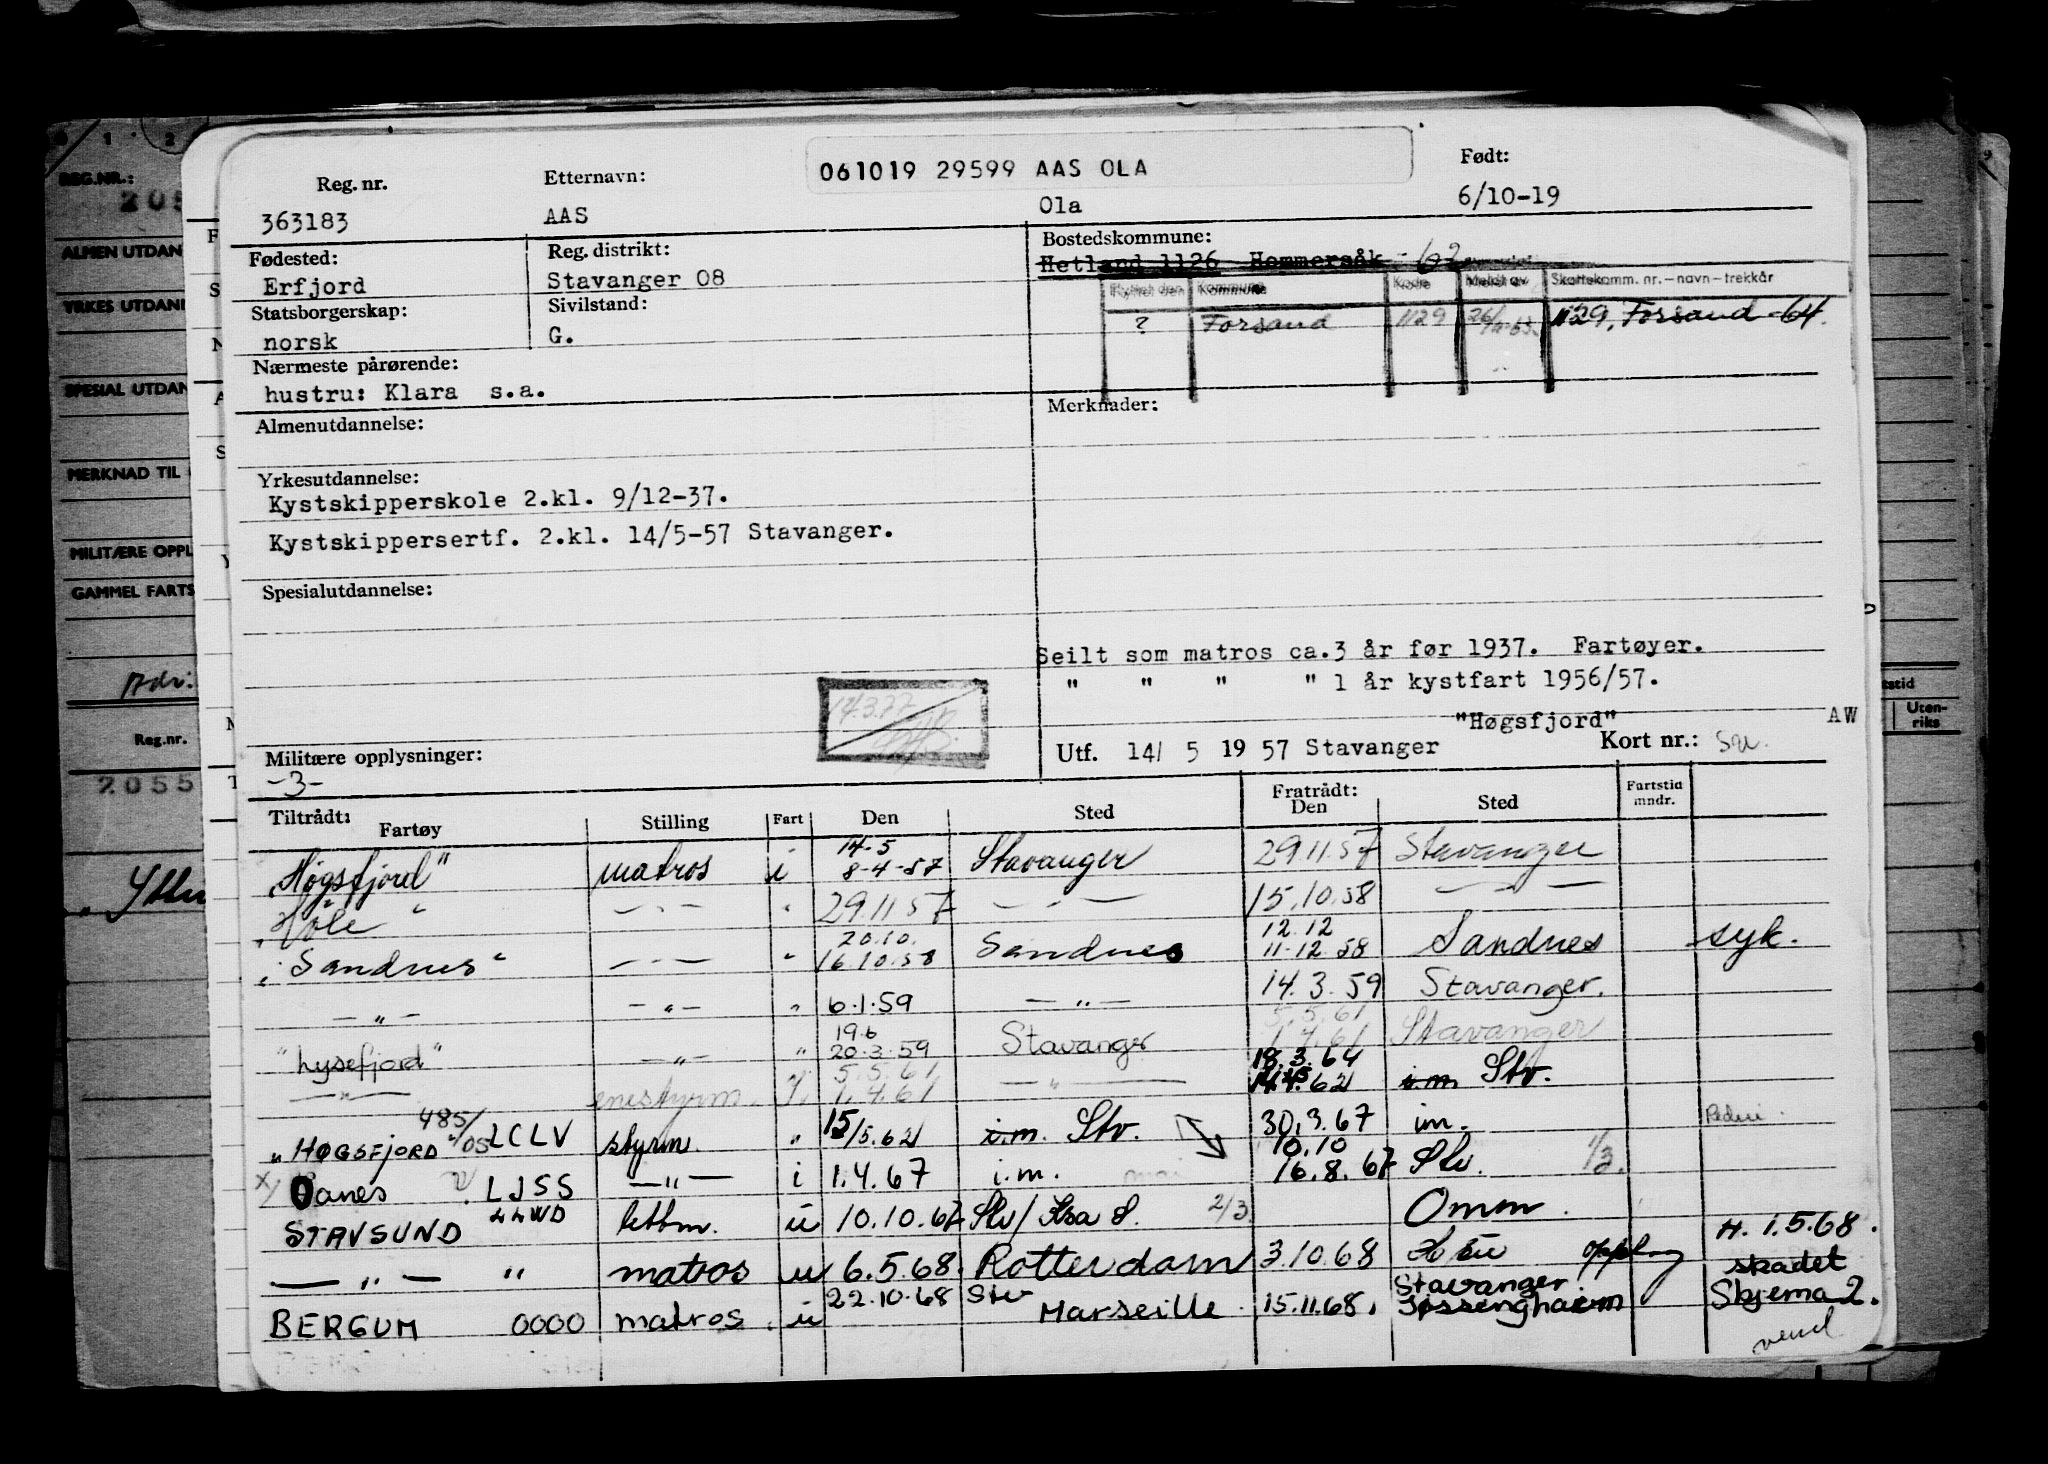 061019 29599 AAS OLA
Reg. nr. Etternavn: Født:
363183 AAS Ola 6/10-19
Fødested: Reg. distrikt: Bostedskommune:
Erfjord Stavanger 08 Hetland 1126 Hommersåk - 62
Flyttet den Kommune Kode Meldt av Skattekomm. nr. – navn – trekkår
? Forsand 1129 1129, Forsand -64.
Statsborgerskap: Sivilstand:
norsk G.
Nærmeste pårørende:
hustru: Klara s.a.
Merknader:
Almenutdannelse:
Yrkesutdannelse:
Kystskipperskole 2.kl. 9/12-37.
Kystskippersertf. 2.kl. 14/5-57 Stavanger.
Spesialutdannelse:
Seilt som matros ca.3 år før 1937. Fartøyer.
" " " " 1 år kystfart 1956/57.
"Høgsfjord" AW
14.3.77
Militære opplysninger: Utf. 14/ 5 19 57 Stavanger Kort nr.:
-3-
Tiltrådt: Fratrådt:
Fartøy Stilling Fart Den Sted Den Sted Fartstid mndr.
14-5
"Høgsfjord" matros i 8-4-57 Stavanger 29.11.57 Stavanger
"Høle" — " — " 29.11.57 — " — 15.10.58 — " —
20.10. 12.12
"Sandnes" — " — " 16.10.58 Sandnes 11.12.58 Sandnes syk.
— " — — " — " 6.1.59 — " — 14.3.59 Stavanger.
19.6 5.5.61
"Lysefjord" — " — " 20.3.59 Stavanger 1.4.61 Stavanger
5.5.61 18.3.64
— " — enestyrm. 1.4.61 — " — i.m. Stv.
485/05
"HØGSFJORD" LCLV styrm. " 15/5.62 i.m. Stv. 30.3.67 im.
10.10
x/ Oanes LJSS — " — i 1.4.67 i.m. 16.8.67 Stv. 1/3.
STAVSUND LLWD lettm. u 10.10.67 Stv/ 2/3. Omm. H. 1.5.68.
— " — " matros u 6.5.68. Rotterdam 3.10.68 skadet
22.10.68 Stv Stavanger
BERGUM 0000 matros. u Marseille. 15.11.68. Jøssenghavn Skjema 2.
vend
REG.NR.:
205
ALMEN UTDAN
YRKES UTDAN
SPESIAL UTDAN
MERKNAD TIL
MILITÆRE OPPL
GAMMEL FARTS
Adr:
Reg.nr.
2055
Uten-
riks